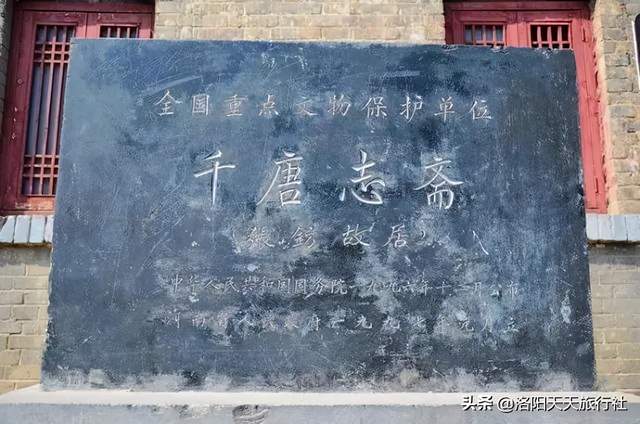 全国重点文物保护单位
千唐志斋
(张钫故居)
中华人民共和国国务院一九九六年十一月公布
河南省人民政府一九九七年元月立
头条 @洛阳天天旅行社